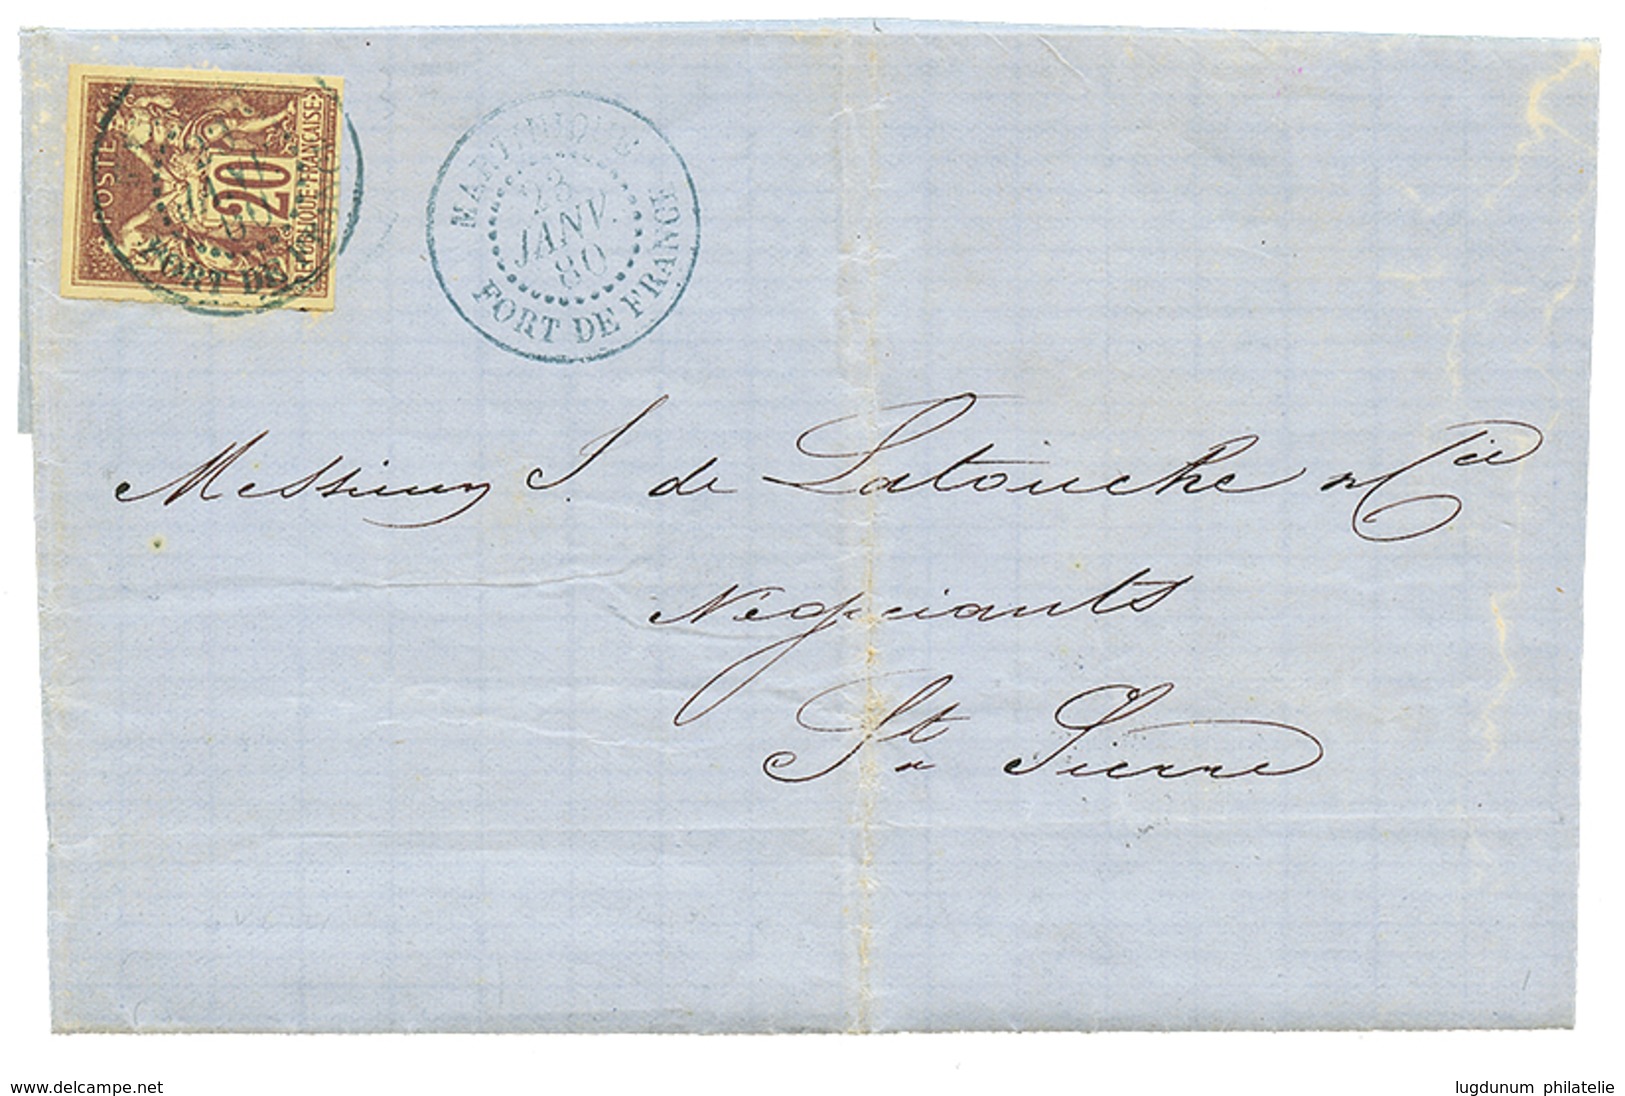 POSTES
20
REPUBLIQUE FRANCAISE
FORT DE
MARTINIQUE
23
JANV.
80
FORT DE FRANCE
Messieurs J. de Latouche & Cie
Négociants
St Pierre
www.delcampe.net
lugdunum philatelie